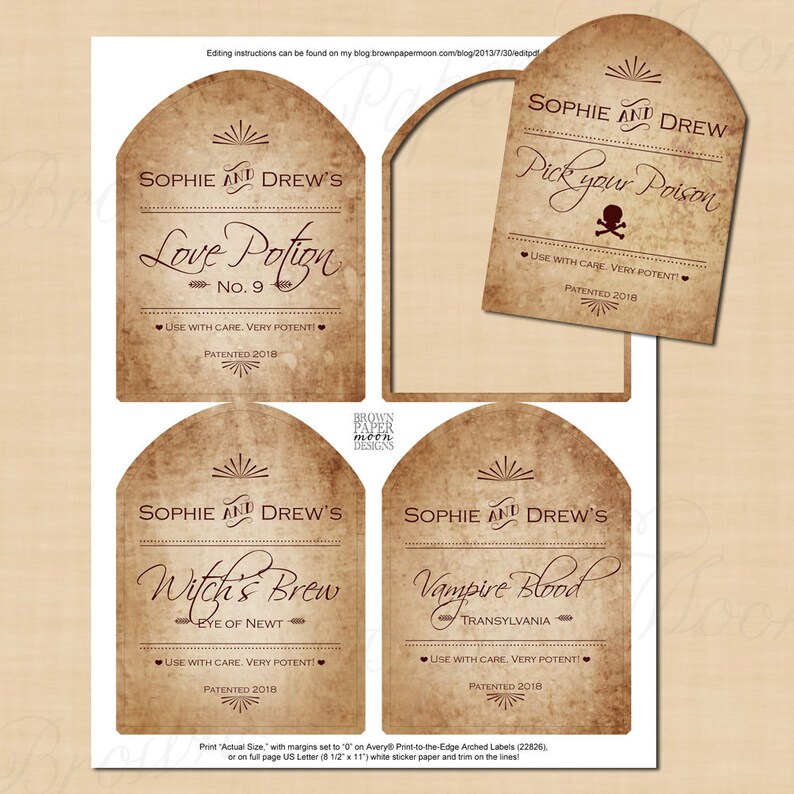 Editing instructions can be found on my blog:brownpapermoon.com/blog/2013/7/30/editpdf
SOPHIE AND DREW'S
Love Potion
No. 9
USE WITH CARE. VERY POTENT!
PATENTED 2018
SOPHIE AND DREW
Pick your Poison
USE WITH CARE. VERY POTENT!
PATENTED 2018
BROWN
PAPER
moon
DESIGNS
SOPHIE AND DREW'S
Witch's Brew
EYE OF NEWT
USE WITH CARE. VERY POTENT!
PATENTED 2018
SOPHIE AND DREW'S
Vampire Blood
TRANSYLVANIA
USE WITH CARE. VERY POTENT!
PATENTED 2018
Print “Actual Size,” with margins set to “0” on Avery® Print-to-the-Edge Arched Labels (22826),
or on full page US Letter (8 1/2” x 11”) white sticker paper and trim on the lines!